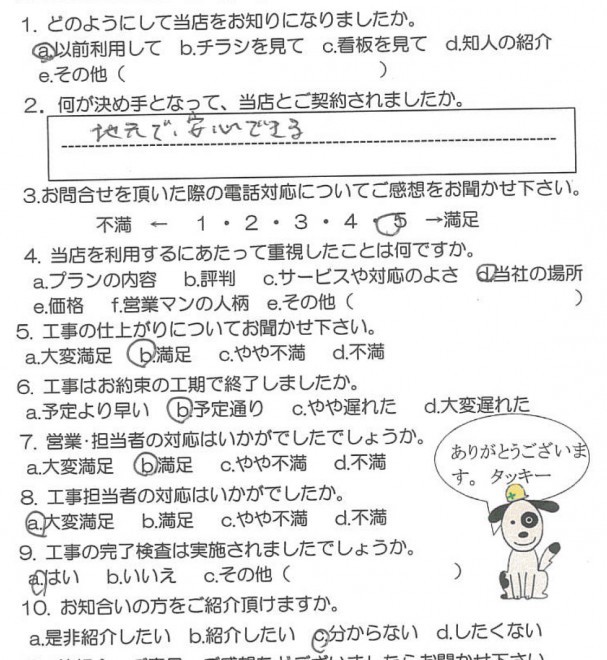 1. どのようにして当店をお知りになりましたか。
a.以前利用して b.チラシを見て c.看板を見て d.知人の紹介
e.その他（　　　）
2. 何が決め手となって、当店とご契約されましたか。
地元で、安心できる
3.お問合せを頂いた際の電話対応についてご感想をお聞かせ下さい。
不満 ← 1・2・3・4・5 →満足
4. 当店を利用するにあたって重視したことは何ですか。
a.プランの内容 b.評判 c.サービスや対応のよさ d.当社の場所
e.価格 f.営業マンの人柄 e.その他（　　　）
5. 工事の仕上がりについてお聞かせ下さい。
a.大変満足 b.満足 c.やや不満 d.不満
6. 工事はお約束の工期で終了しましたか。
a.予定より早い b.予定通り c.やや遅れた d.大変遅れた
7. 営業・担当者の対応はいかがでしたでしょうか。
a.大変満足 b.満足 c.やや不満 d.不満
ありがとうございま
す。 タッキー
8. 工事担当者の対応はいかがでしたか。
a.大変満足 b.満足 c.やや不満 d.不満
9. 工事の完了検査は実施されましたでしょうか。
a.はい b.いいえ c.その他（　　　）
10. お知合いの方をご紹介頂けますか。
a.是非紹介したい b.紹介したい c.分からない d.したくない